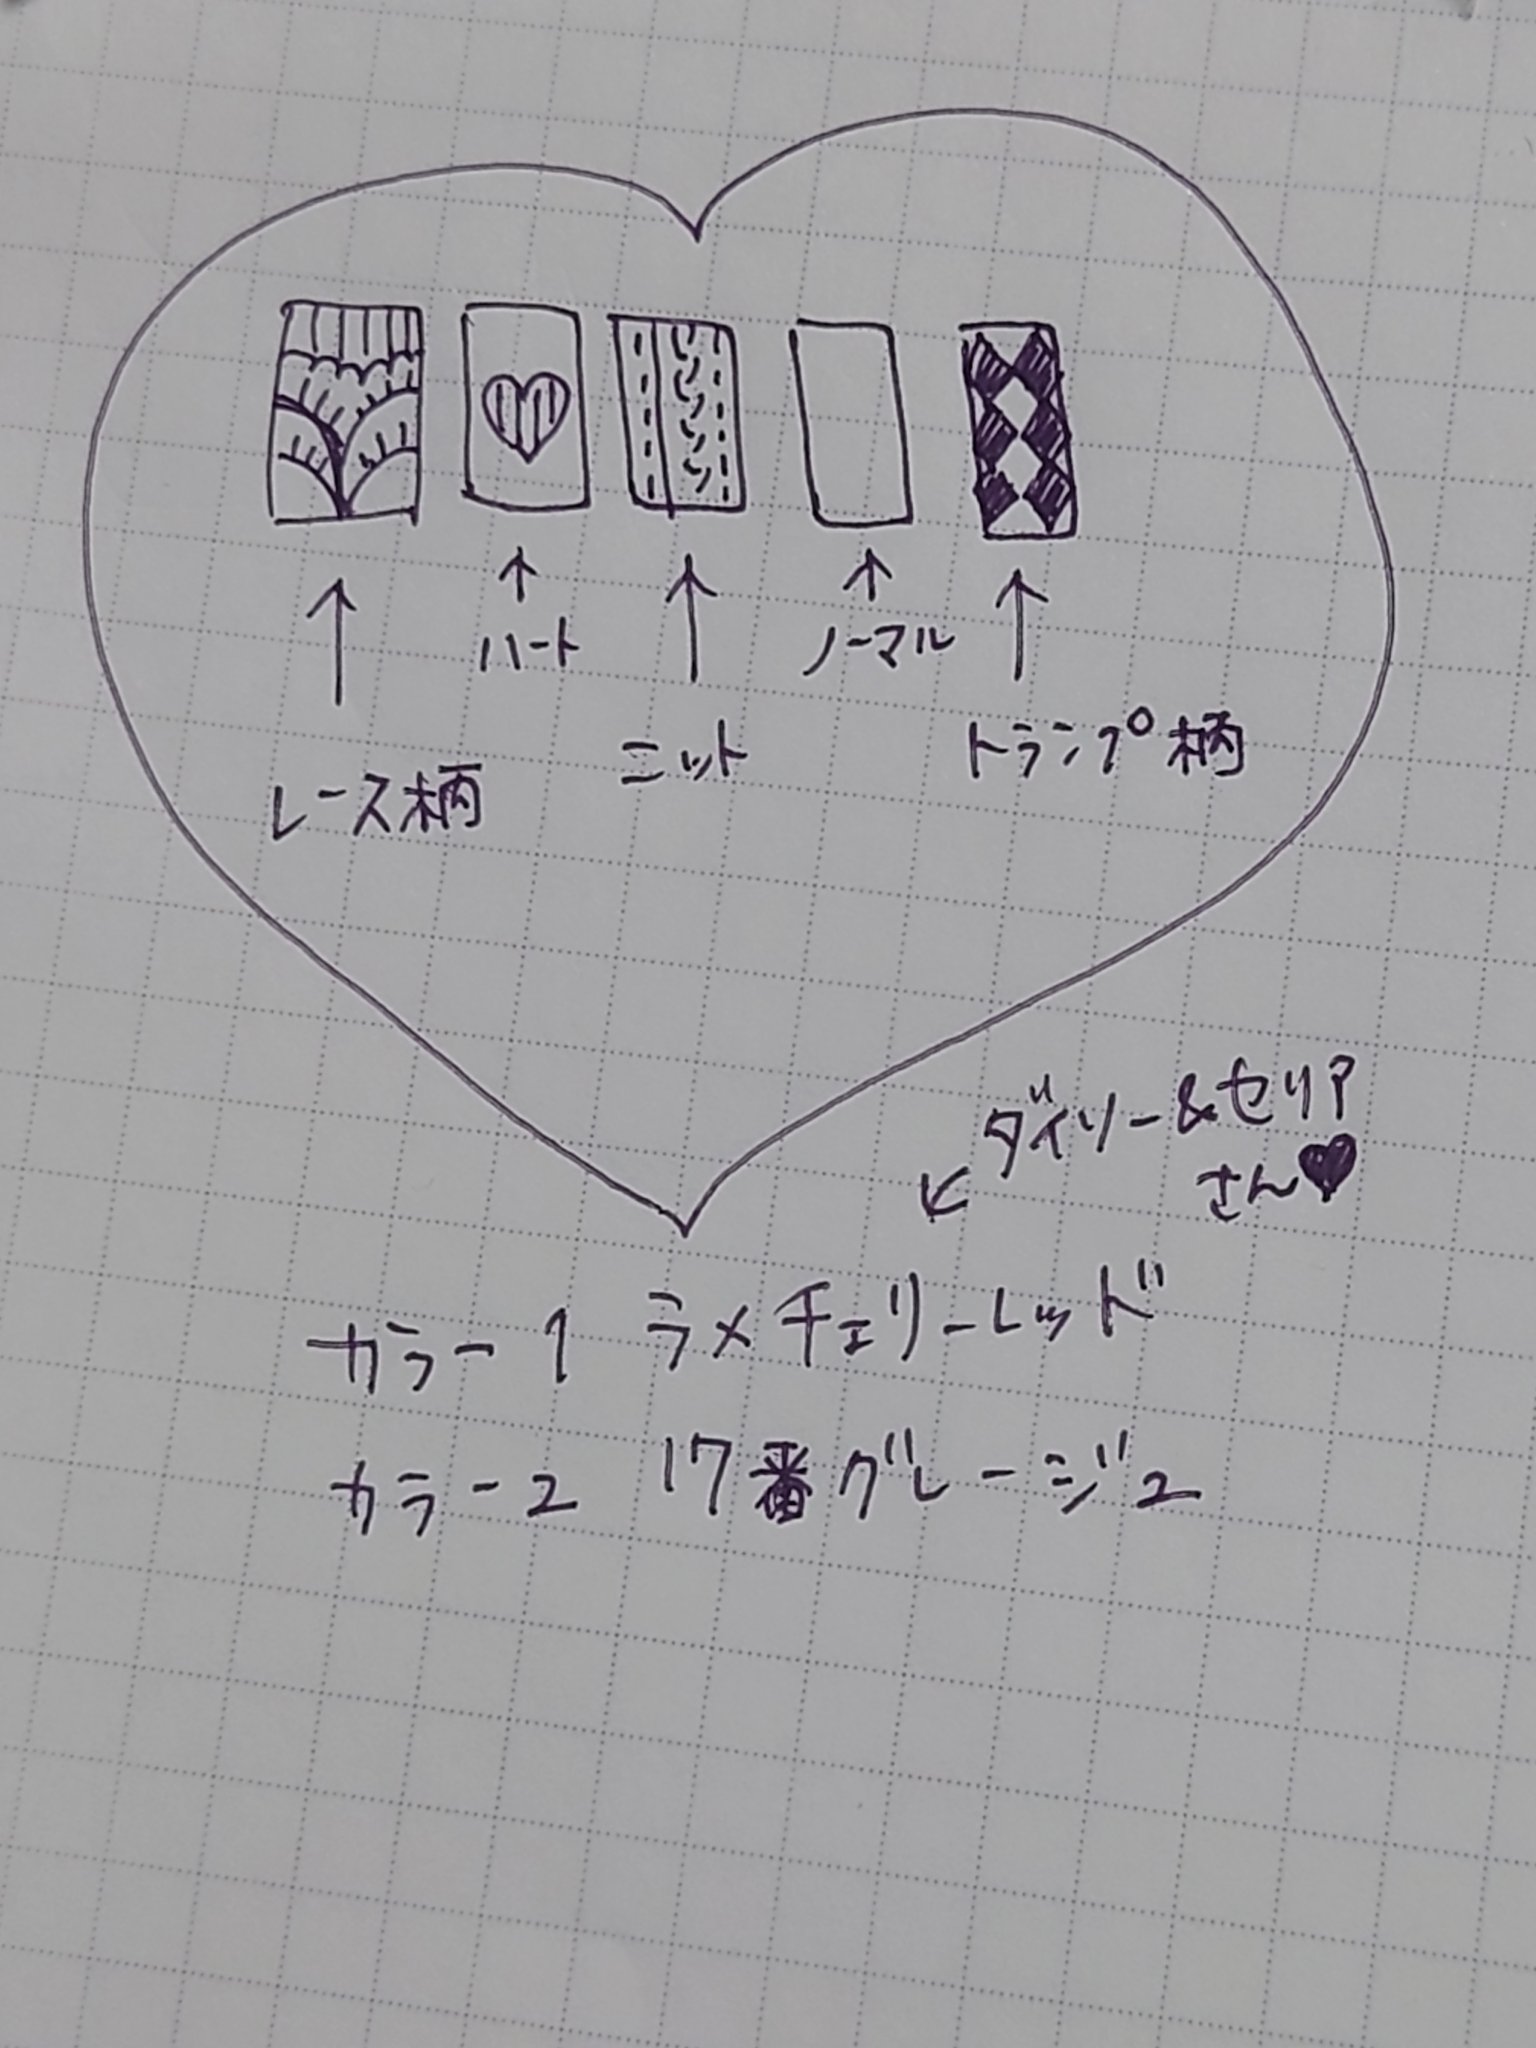 ハート
ノーマル
レース柄
ニット
トランプ柄
ダイソー&セリア
さん♥
カラー1 ラメチェリーレッド
カラー2 17番グレージュ